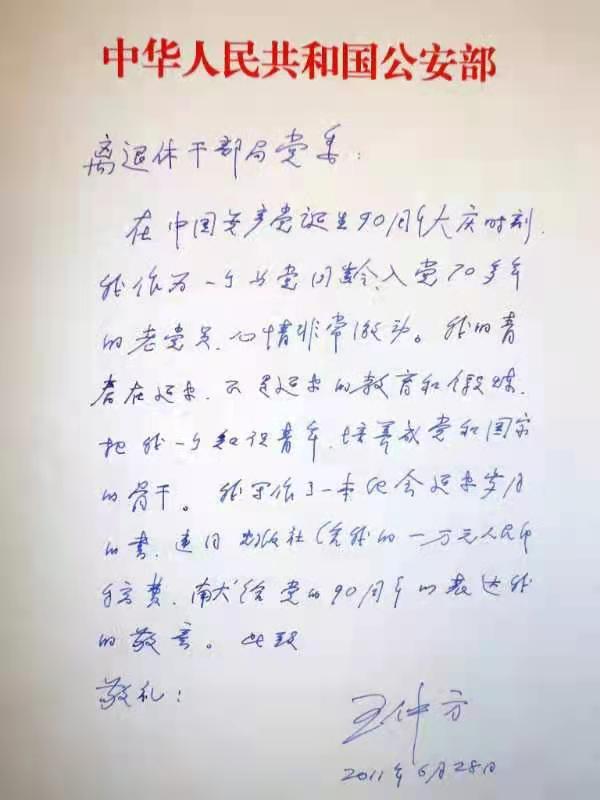 中华人民共和国公安部
离退休干部局党委：
在中国共产党诞生90周年大庆时刻，
我作为一个与党同龄入党70多年
的老党员，心情非常激动。我的青
春在延安，又是延安的教育和锻炼，
把我一个知识青年，培养成党和国家
的骨干。我写作了一本纪念延安岁月
的书，连同出版社给我的一万元人民币
稿费，献给党的90周年以表达我
的敬意。此致
敬礼！
王仲方
2011年6月28日